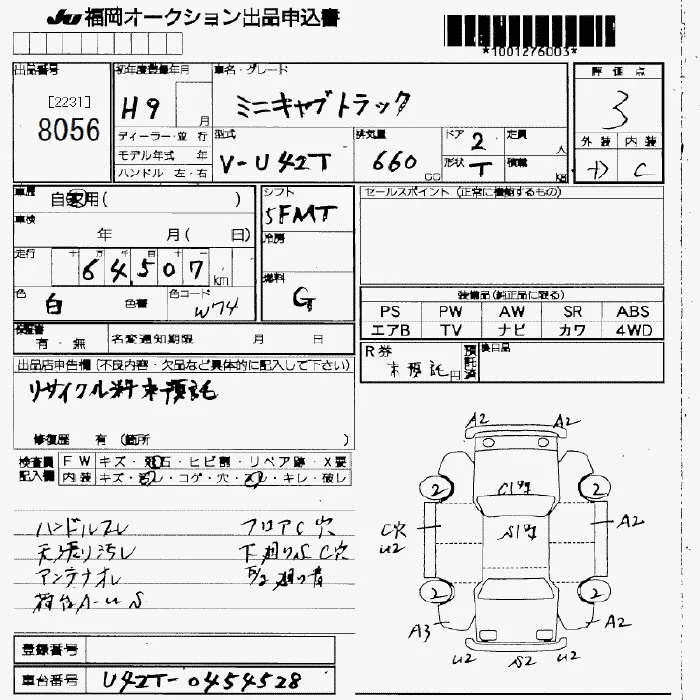 JU 福岡オークション出品申込書
*1001276003*
出品番号
[2231]
8056
初年度登録年月
H9 月
ディーラー・並行
モデル年式 年
ハンドル 左・右
車名・グレード
ミニキャブトラック
型式
V-U42T
排気量
660 CC
ドア 2
形状 T
定員 人
積載 KG
評価点
3
外装 内装
D C
車歴
自家用( )
車検
年 月( 日)
走行
十 万 千 百 十
64,507 km
色
白
色番
色コード
W74
シフト
5FMT
冷房
燃料
G
セールスポイント (正常に機能するもの)
装備品(純正品に限る)
PS PW AW SR ABS
エアB TV ナビ カワ 4WD
保証書
有・無
名変通知期限 月 日
R券
未預託 円
預託済
後日品
出品店申告欄(不良内容・欠品など具体的に記入して下さい)
リサイクル料未預託
修復歴 有 (箇所 )
検査員記入欄
FW キズ・飛石・ヒビ割・リペア跡・X要
内装 キズ・汚レ・コゲ・穴・スレ・キレ・破レ
ハンドルスレ
フロアC穴
天張り汚レ
下廻りS C穴
アンテナオレ
荷台A-U S
A2
A2
2
2
C穴
U2
A2
2
2
A3
A2
U2
S2
U2
登録番号
車台番号
U42T-0454528